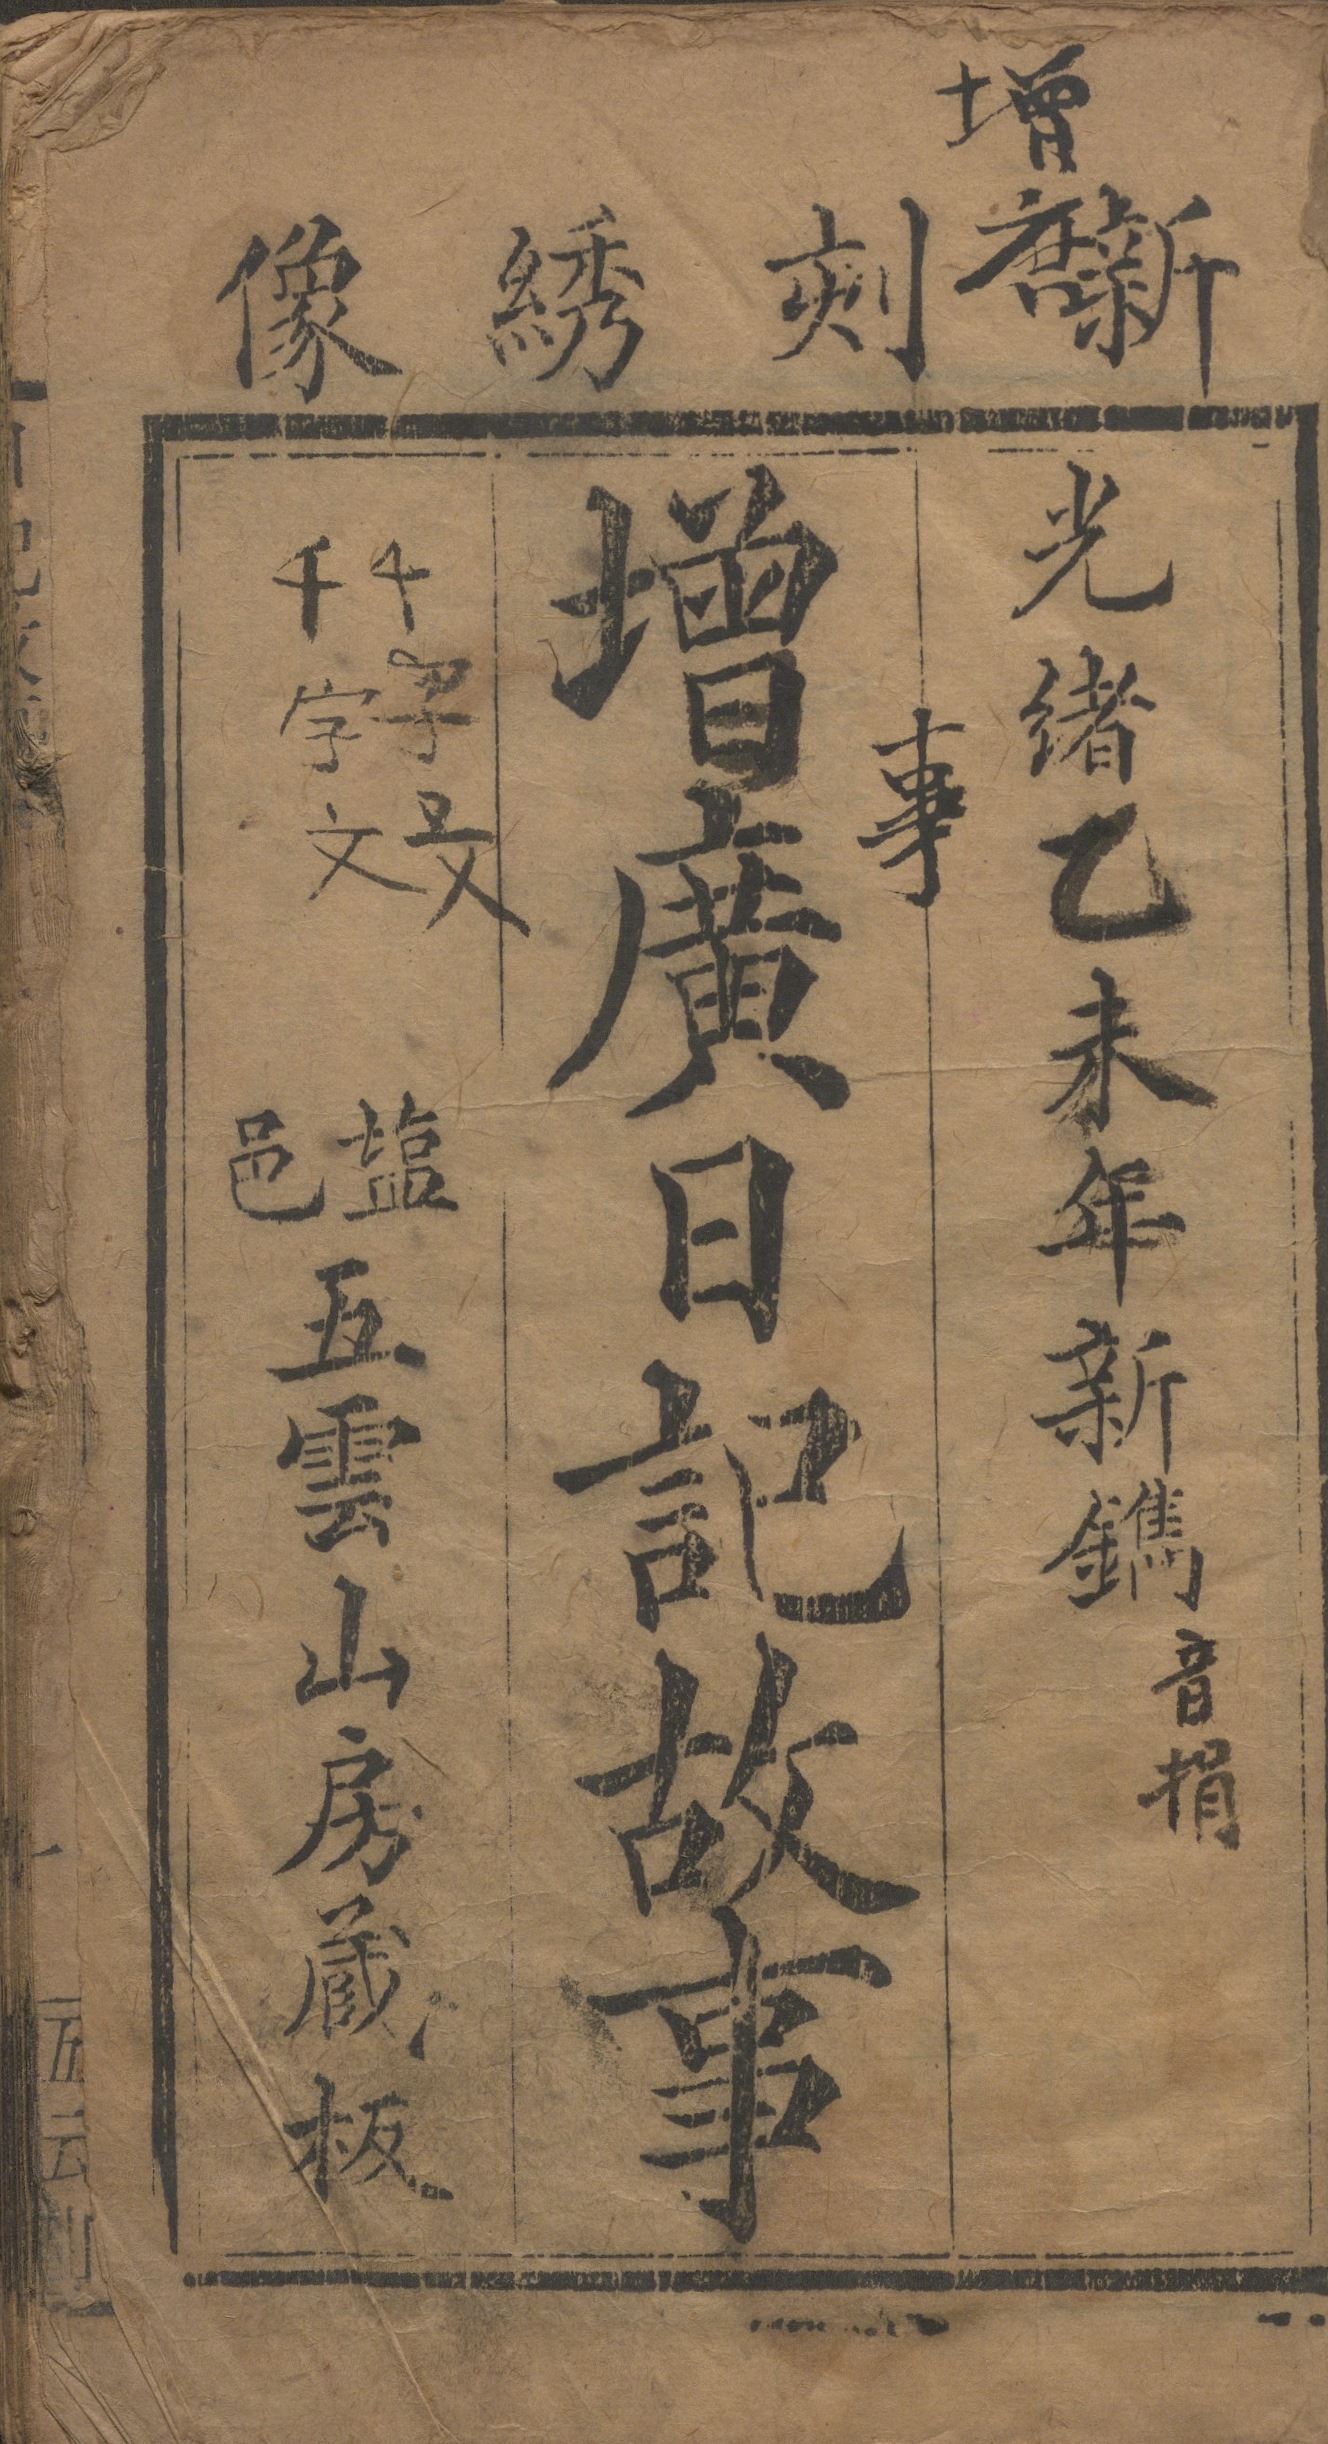 增
新刻綉像
光緒乙未年新鐫
音捐
事
增廣日記故事
千字文
千字文
塩邑
五雲山房蔵板